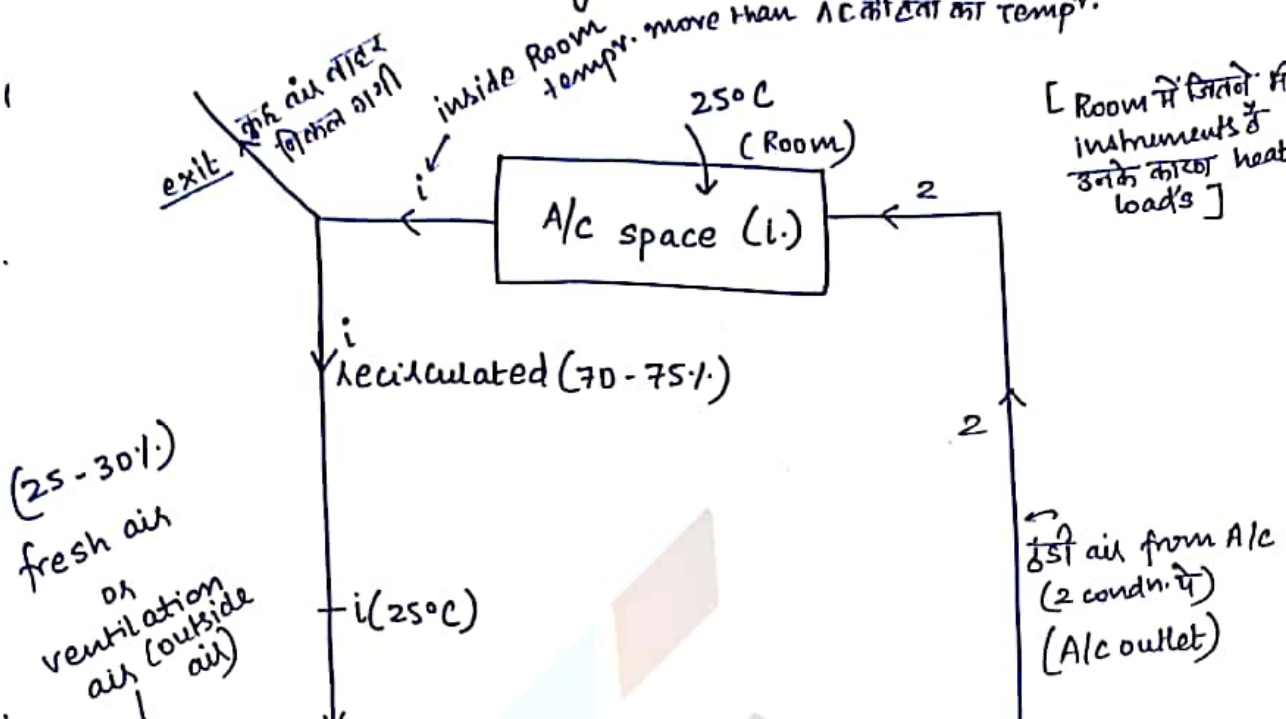 inside Room
tempr. more than AC की हवा का Tempr.
कुछ air बाहर
निकल जाती
exit
i
25°C
(Room)
A/c space (i.)
2
[ Room में जितने
instruments है
उनके कारण heat
load's ]
i
recirculated (70-75%)
2
(25-30%)
fresh air
or
ventilation
air (outside
air)
i(25°C)
ठंडी air from A/c
(2 condn. पे)
(A/c outlet)